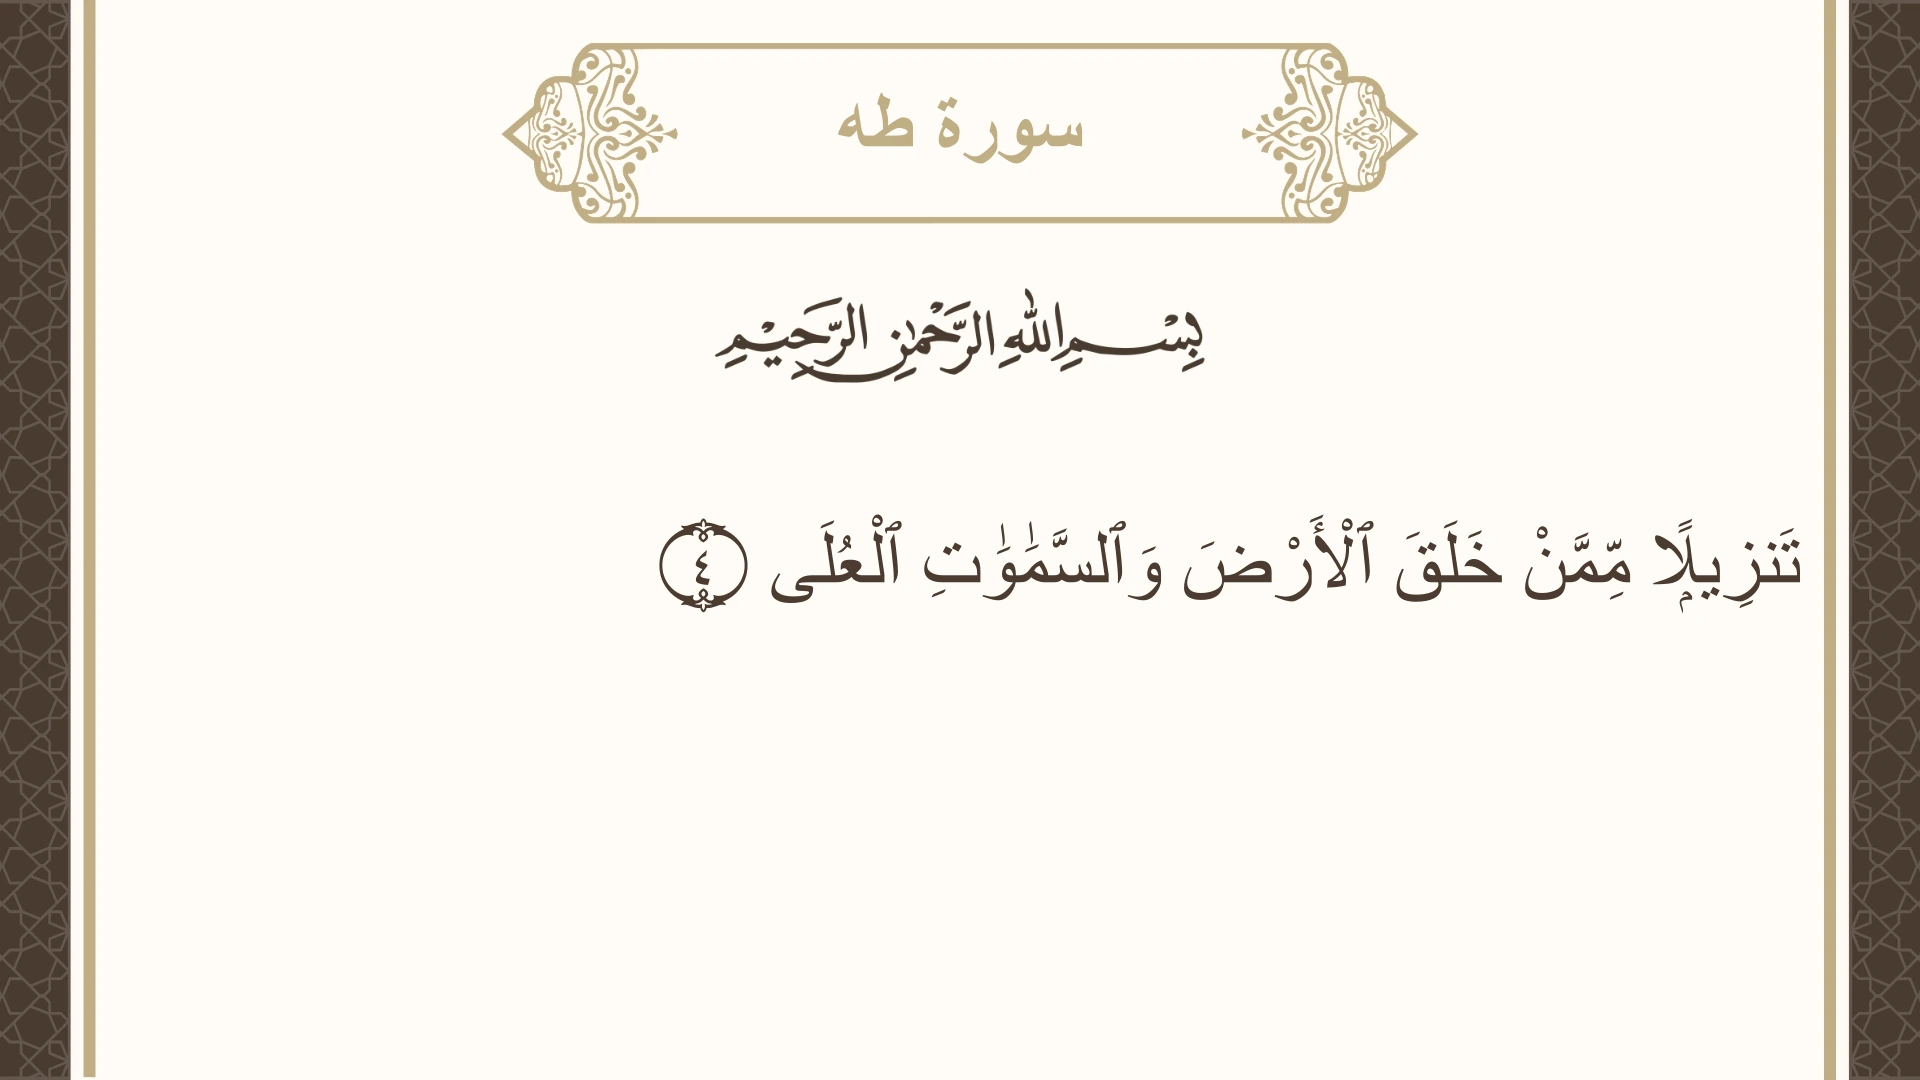 سورة طه
بِسْمِ اللهِ الرَّحْمٰنِ الرَّحِيْمِ
تَنزِيلًۭا مِّمَّنْ خَلَقَ ٱلْأَرْضَ وَٱلسَّمَٰوَٰتِ ٱلْعُلَى ٤